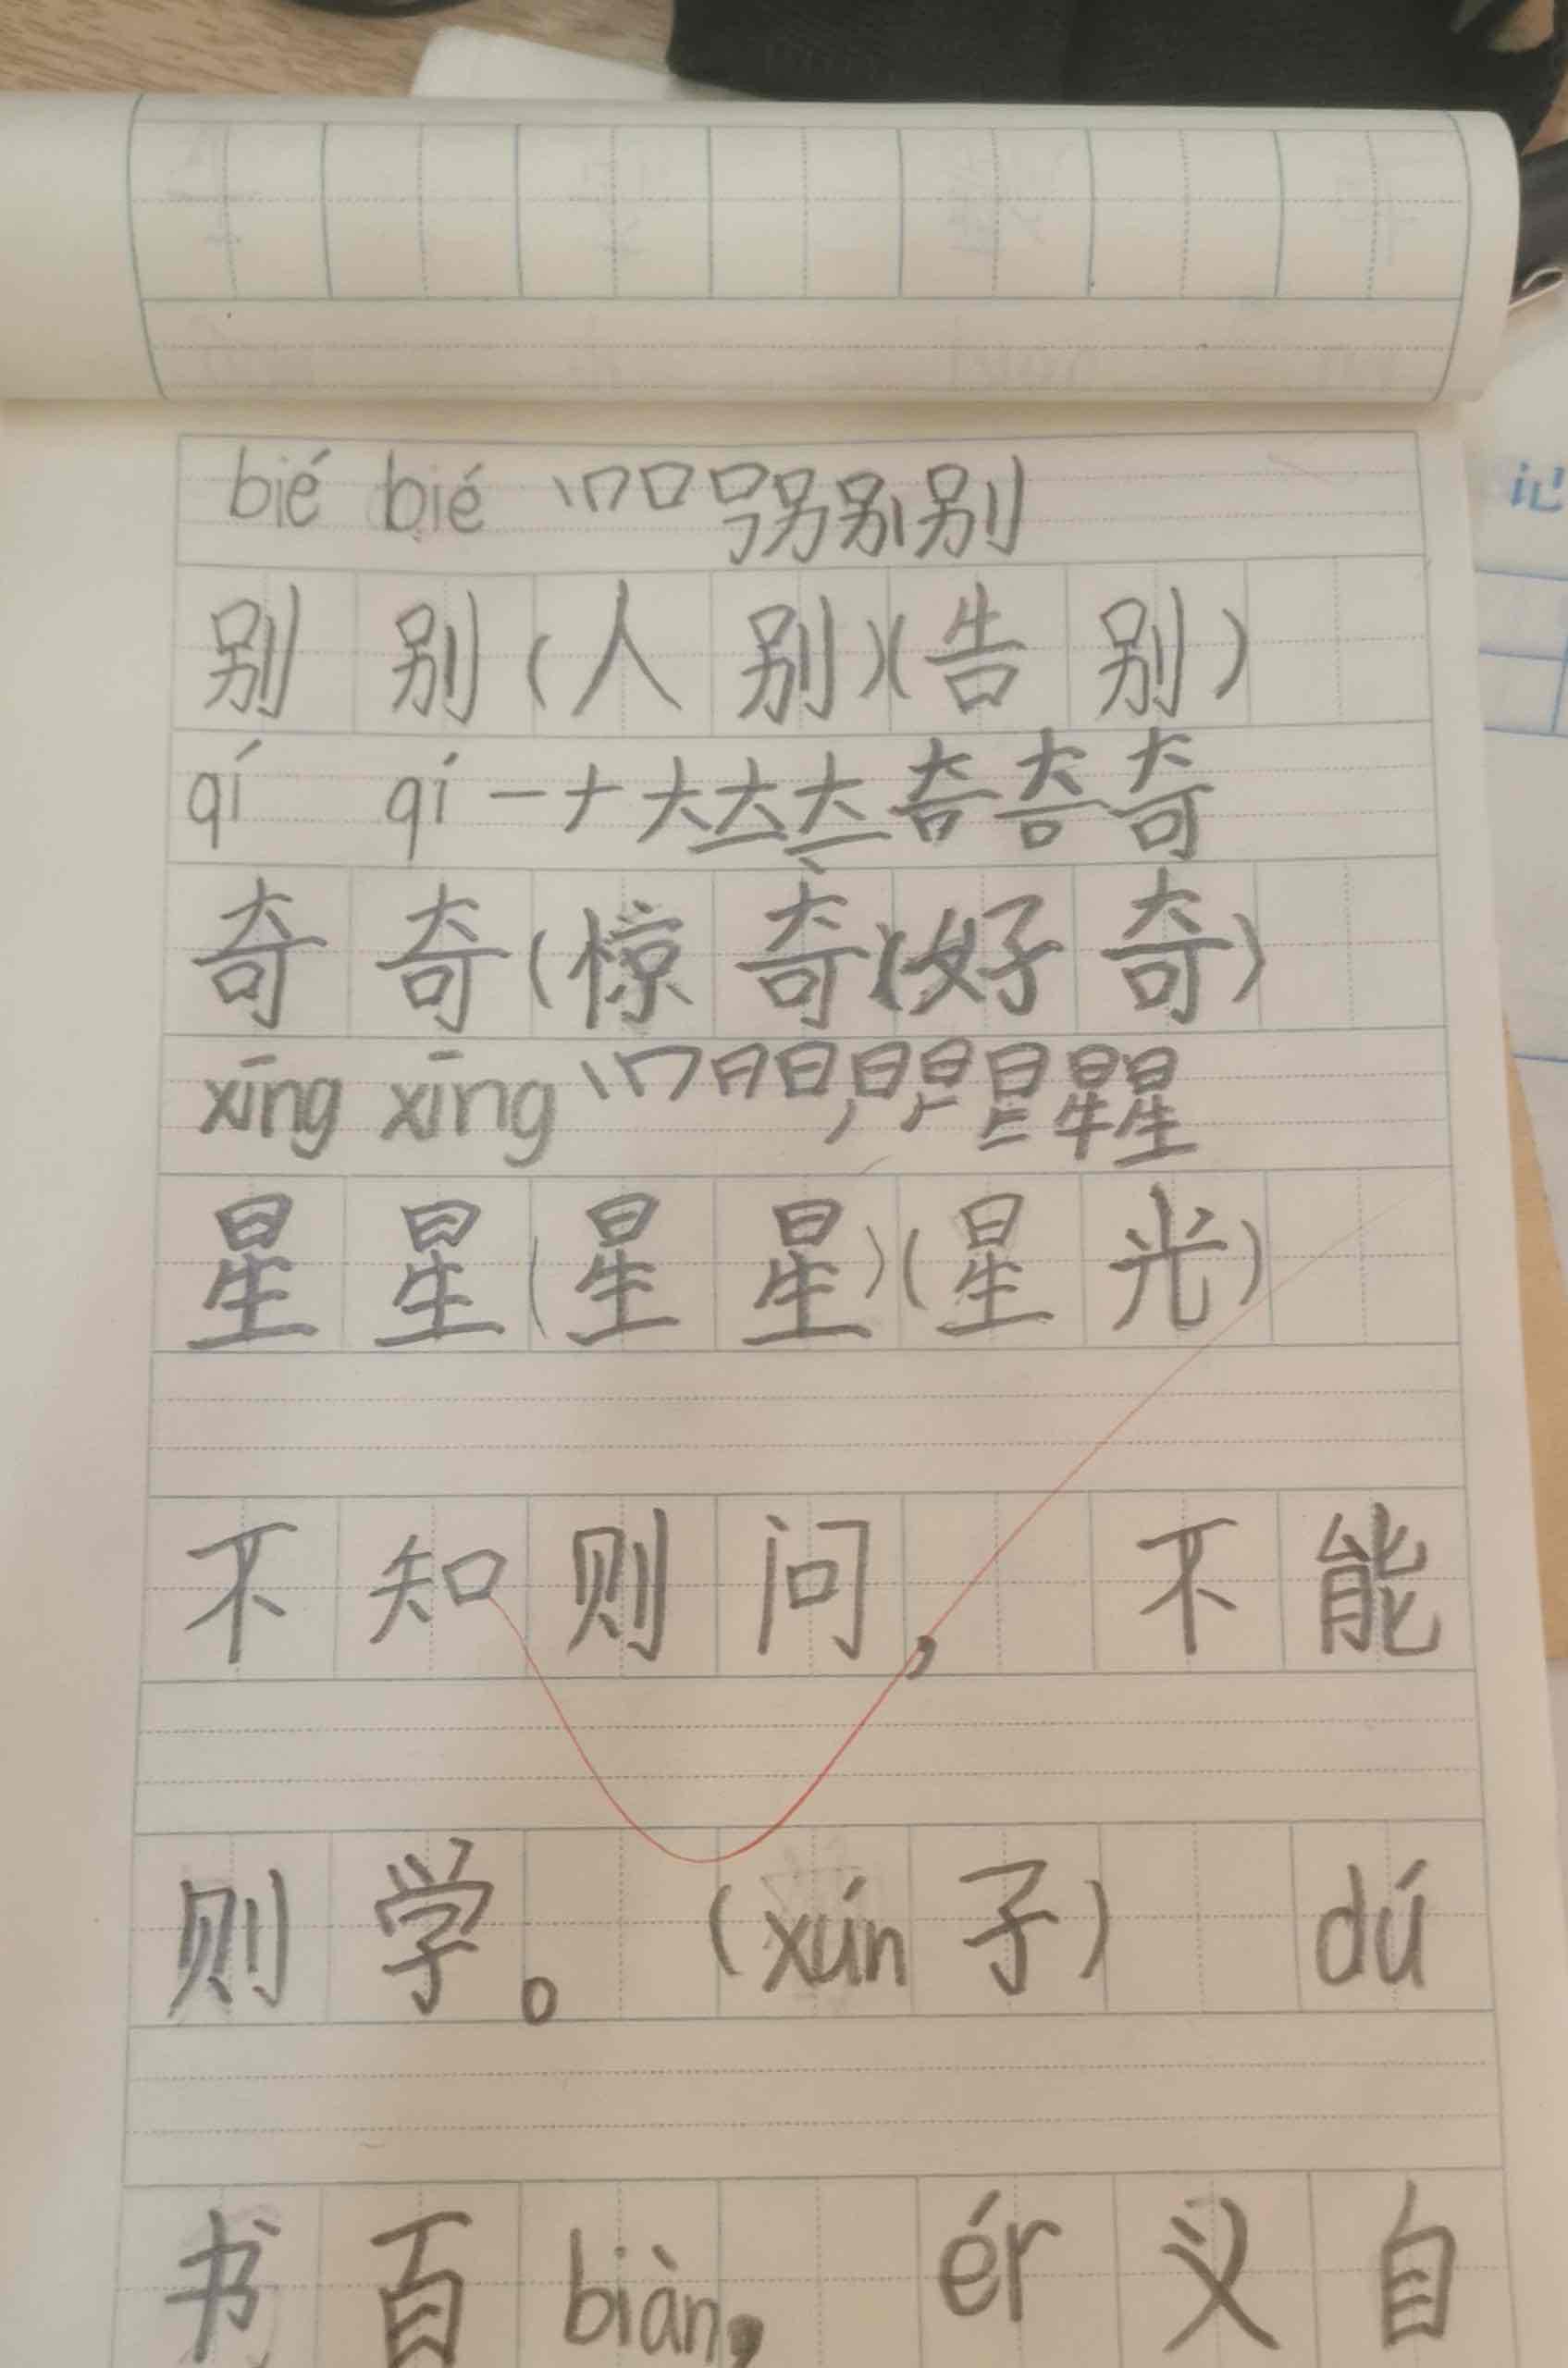 bié bié 丨冂口号另别别
别别(人别)(告别)
qí qí 一ナ大立产奇奇奇
奇奇(惊奇)(好奇)
xīng xīng 丨冂日日星星
星星(星星)(星光)
不知则问,不能
则学。(xún子) dú
书百biàn, ér义自
记